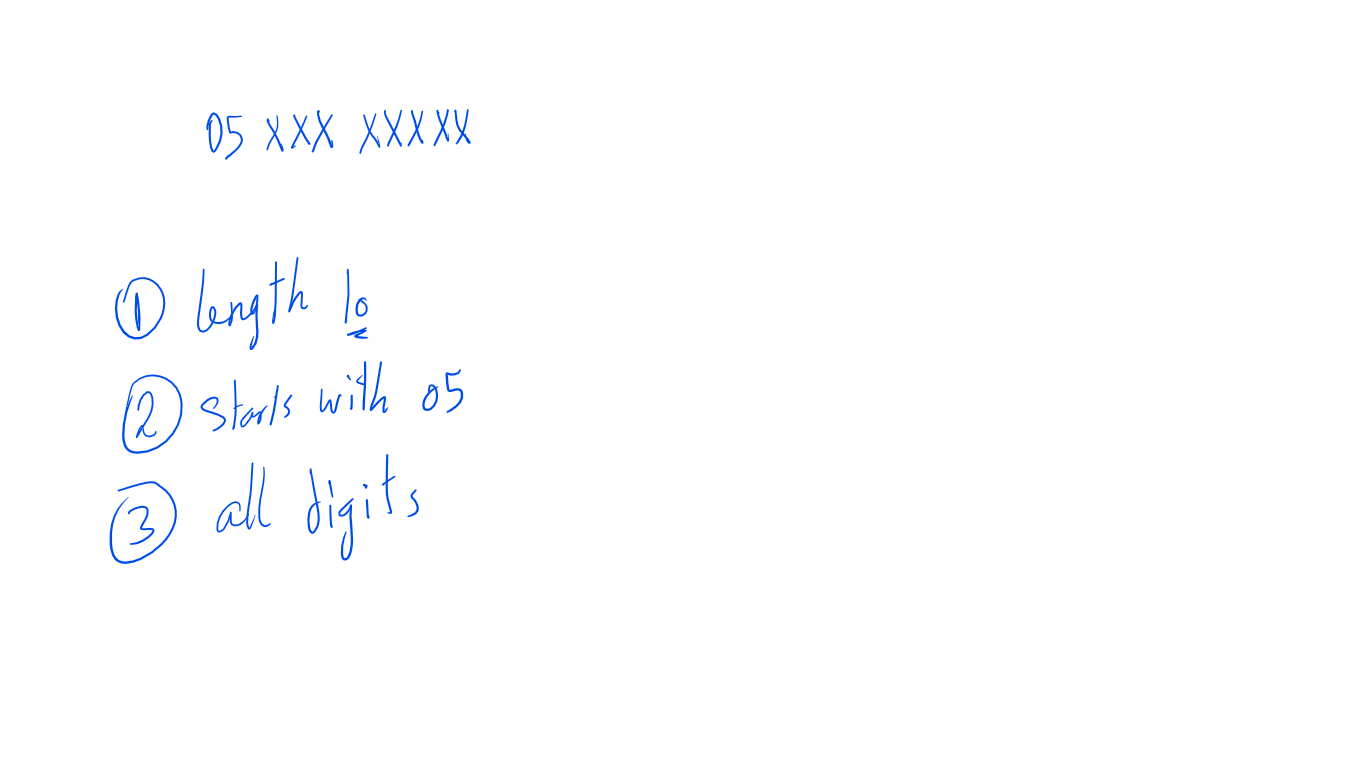 05 XXX XXXXX
① length 10
② starts with 05
③ all digits